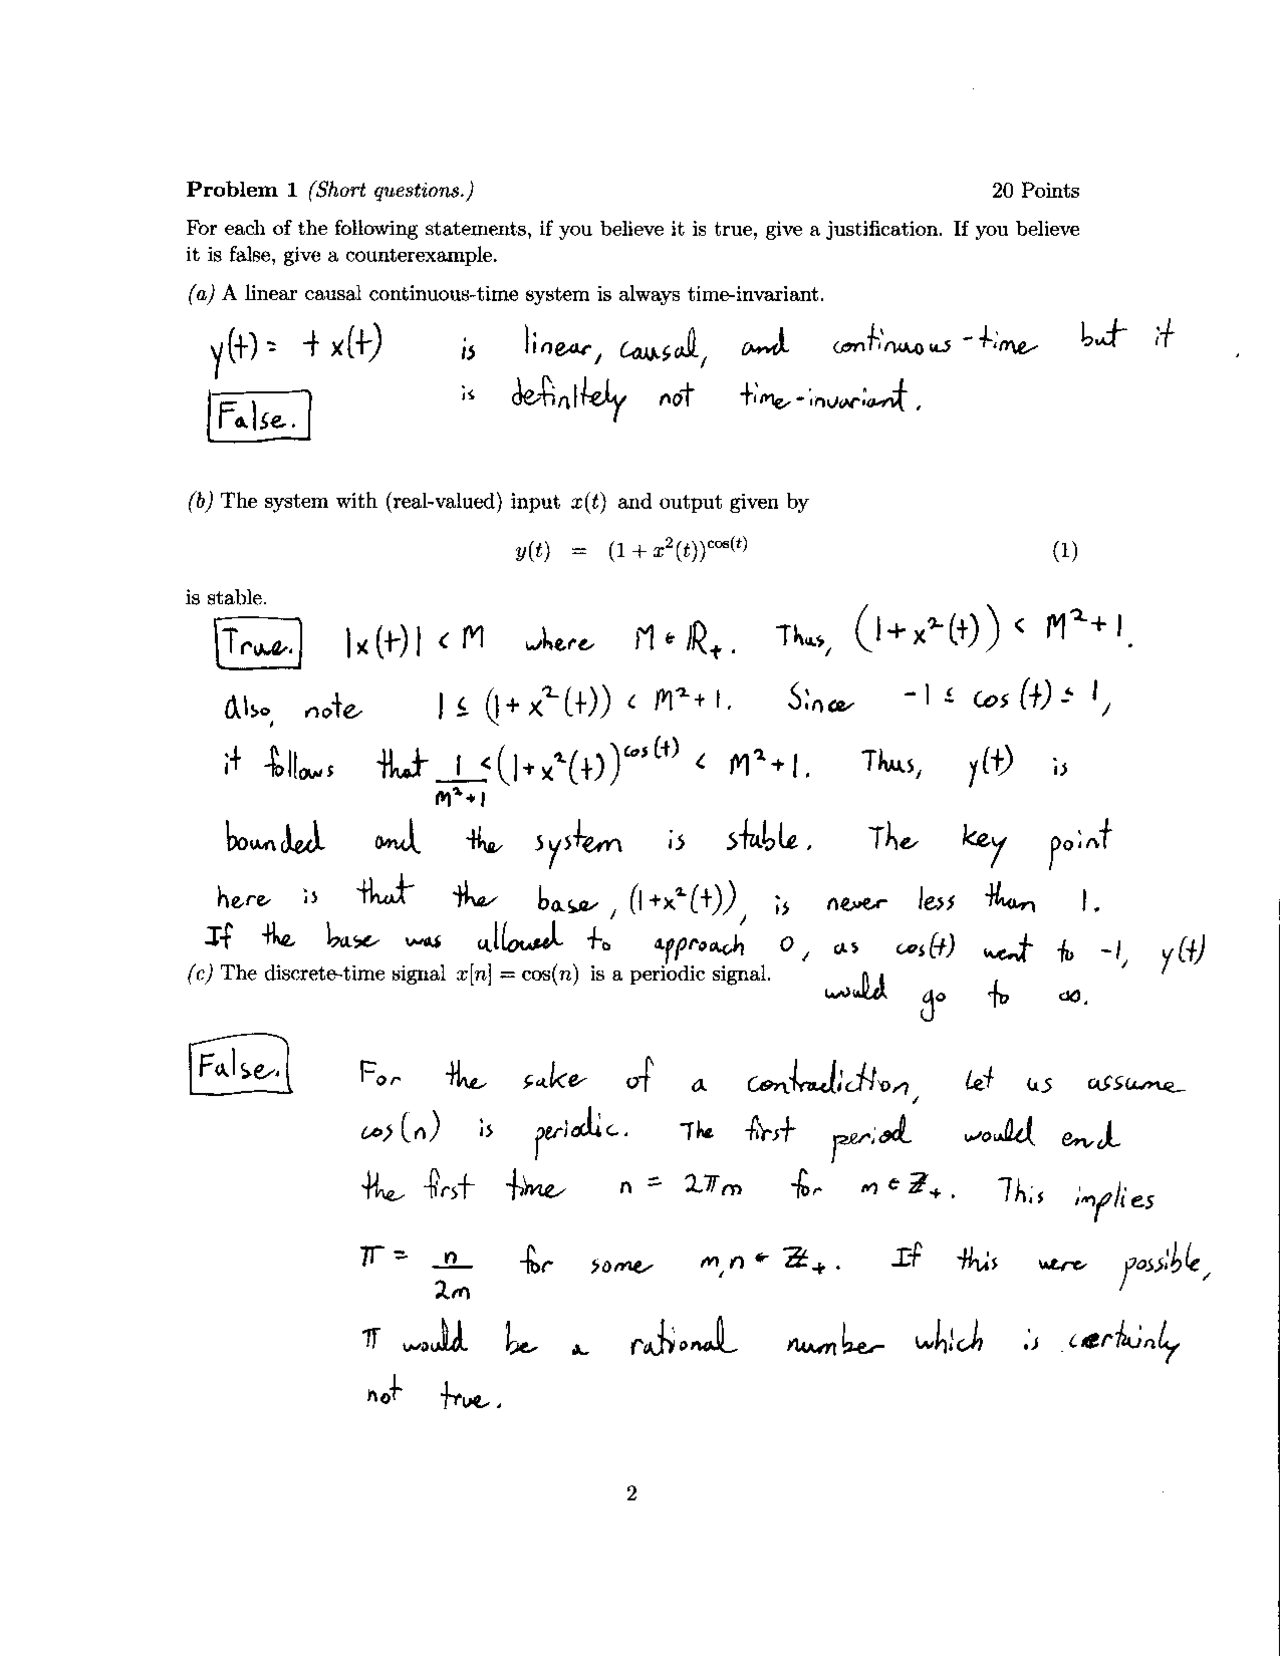 Problem 1 (Short questions.) 20 Points
For each of the following statements, if you believe it is true, give a justification. If you believe
it is false, give a counterexample.
(a) A linear causal continuous-time system is always time-invariant.
y(t) = t x(t) is linear, causal, and continuous-time but it
is definitely not time-invariant.
False.
(b) The system with (real-valued) input x(t) and output given by
y(t) = (1 + x²(t))^cos(t) (1)
is stable.
True. |x(t)| < M where M ∈ ℝ₊. Thus, (1+x²(t)) < M²+1.
Also, note 1 ≤ (1+x²(t)) < M²+1. Since -1 ≤ cos(t) ≤ 1,
it follows that 1/(M²+1) < (1+x²(t))^cos(t) < M²+1. Thus, y(t) is
bounded and the system is stable. The key point
here is that the base, (1+x²(t)), is never less than 1.
If the base was allowed to approach 0, as cos(t) went to -1, y(t)
would go to ∞.
(c) The discrete-time signal x[n] = cos(n) is a periodic signal.
False. For the sake of a contradiction, let us assume
cos(n) is periodic. The first period would end
the first time n = 2πm for m ∈ ℤ₊. This implies
π = n/2m for some m,n ∈ ℤ₊. If this were possible,
π would be a rational number which is certainly
not true.
2